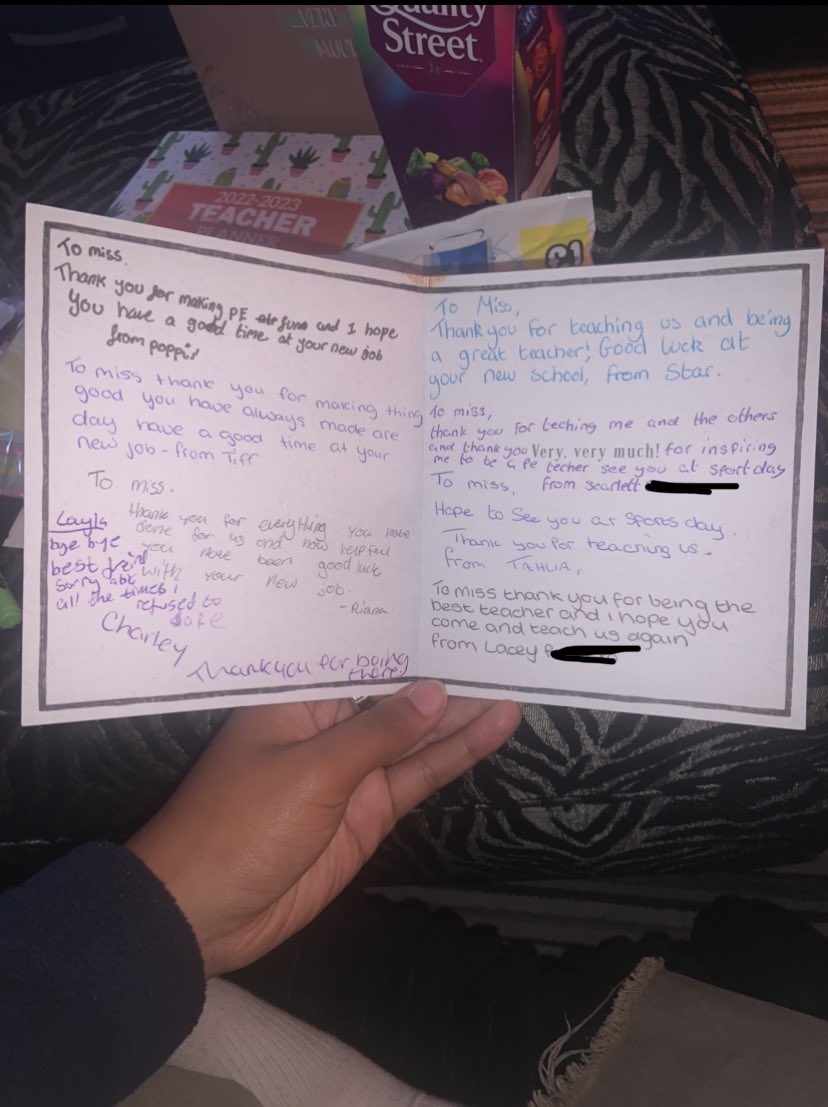 Quality
Street
2022-2023
TEACHER
PLANNER
£1
To miss.
Thank you for making PE fun and I hope
You have a good time at your new job
from poppi
To miss thank you for making thing
good you have always made are
day have a good time at your
new job - from Tiff
To miss.
thank you for everything. you have
done for us and how helpful
you have been good luck
with your new job.
- Riana.
Layla
bye bye
best freind
sorry abt
all the times i
refused to
Charley
Thankyou for being
there
To Miss,
Thank you for teaching us and being
a great teacher! Good luck at
your new school, from Star.
To miss,
thank you for teching me and the others
and thank you Very, very much! for inspiring
me to be a Pe techer see you at sport day
from scarlett
To miss,
Hope to See you at Sports day.
Thank you for teaching us.
from TAHLIA,
To miss thank you for being the
best teacher and i hope you
come and teach us again
from Lacey